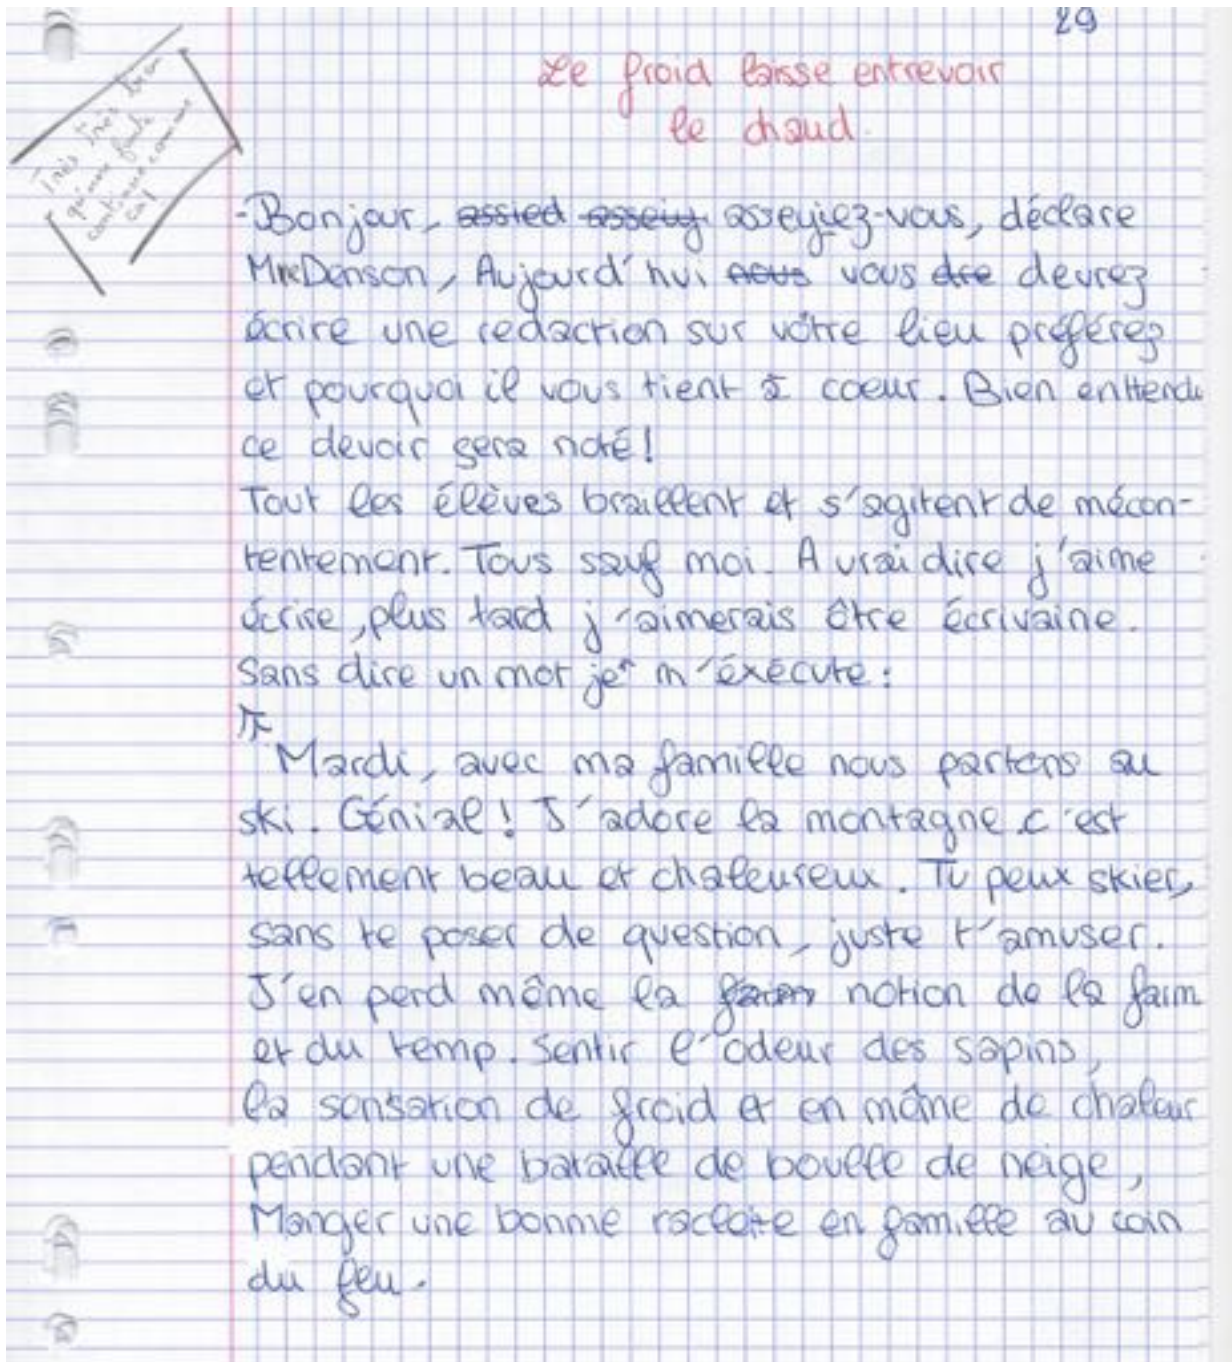 29
Le froid laisse entrevoir
le chaud.
Très Très bien
qu'une faute
continue comme
ça!
-Bonjour, assied asseiy asseyiez-vous, déclare
MmeDenson, Aujourd'hui nous vous dre devrez
écrire une redaction sur vôtre lieu préférez
et pourquoi il vous tient à coeur. Bien enttendu
ce devoir sera noté!
Tout les élèves braillent et s'agitent de mécon-
tentement. Tous sauf moi. A vrai dire j'aime
écrire, plus tard j'aimerais être écrivaine.
Sans dire un mot je m'éxécute:
Mardi, avec ma famille nous partons au
ski. Génial! J'adore la montagne c'est
tellement beau et chaleureux. Tu peux skier,
sans te poser de question, juste t'amuser.
J'en perd même la faim notion de la faim
et du temp. Sentir l'odeur des sapins,
la sensation de froid et en même de chaleur
pendant une bataille de boulle de neige,
Manger une bonne raclette en famille au coin
du feu.